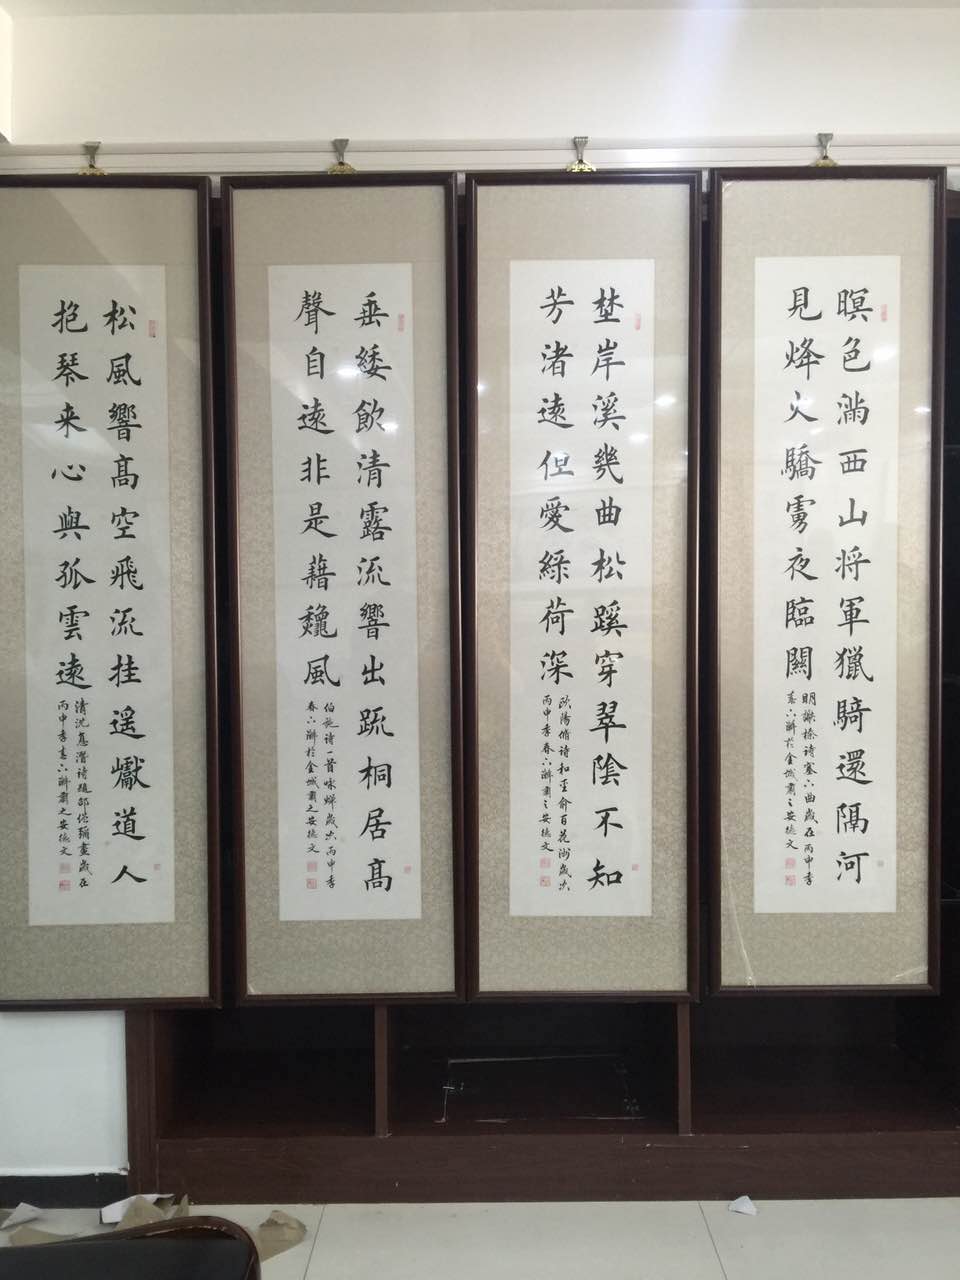 暝色滿西山将軍獵騎還隔河
見烽火驕虜夜臨關
明謝榛诗塞六曲歲在丙申季
春六澣於金城肅之安德文
埜岸溪幾曲松蹊穿翠陰不知
芳渚遠但愛綵荷深
欧陽脩诗和圣俞百花洲歲次
丙申季春六澣肅之安德文
垂緌飲清露流響出疏桐居髙
聲自遠非是藉龝風
伯施诗一首咏蟬歲次丙申季
春六澣於金城肅之安德文
松風響髙空飛流挂遥巘道人
抱琴来心與孤雲遠
清沈德潛诗題邵僧彌畫歲在
丙申季春六澣肅之安德文